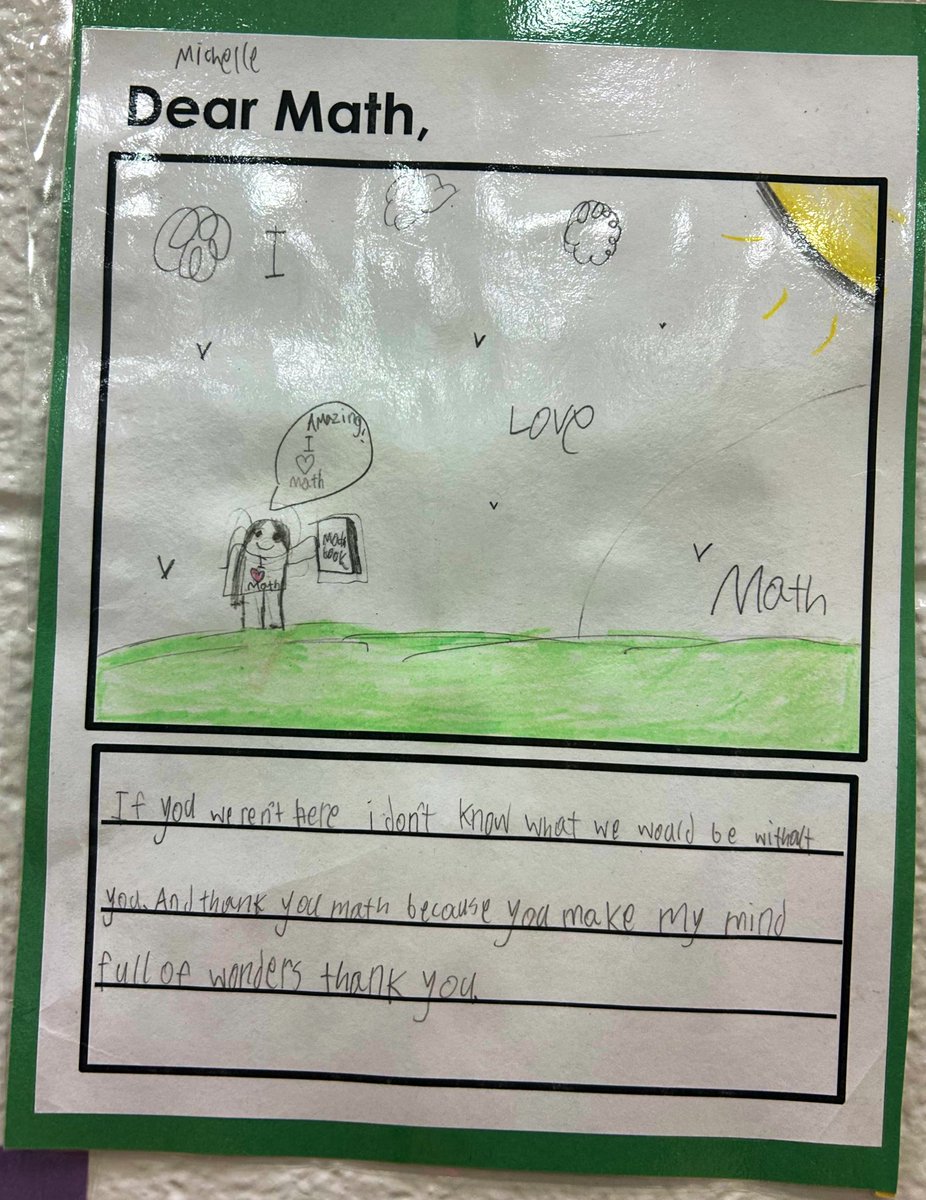 Michelle
Dear Math,
I
Love
Math
Amazing!
I
math
I
Math
Math
book
If you weren't here i don't know what we would be without
you. And thank you math because you make my mind
full of wonders thank you.